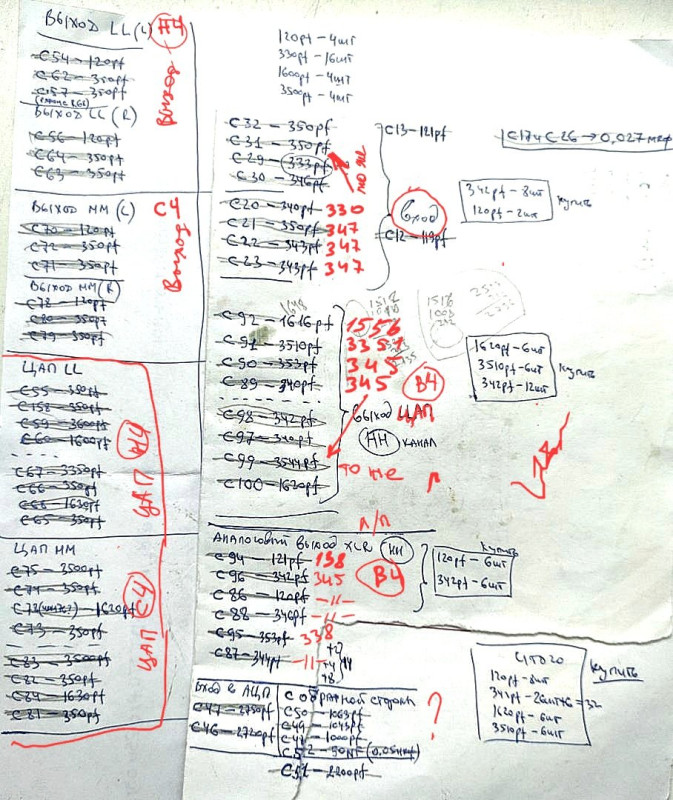 ВЫХОД LL (L) НЧ
C54 – 120pf
C62 – 350pf
C157 – 350pf
ВЫХОД LL (R)
C56 – 120pf
C64 – 350pf
C63 – 350pf
ВЫХОД
ВЫХОД MM (L) СЧ
C70 – 120pf
C72 – 350pf
C71 – 350pf
ВЫХОД MM (R)
C78 – 120pf
C80 – 350pf
C79 – 350pf
ВЫХОД
ЦАП LL
C55 – 350pf
C158 – 350pf
C59 – 3600pf
C60 – 1600pf
C67 – 3350pf
C66 – 350pf
C68 – 1630pf
C65 – 350pf
ЦАП НЧ
ЦАП ММ
C75 – 3500pf
C74 – 350pf
– 1620pf
C73 – 350pf
C83 – 3500pf
C82 – 350pf
C84 – 1630pf
C81 – 350pf
ЦАП СЧ
120pf – 4шт
330pf – 16шт
1600pf – 4шт
3500pf – 4шт
C32 – 350pf
C31 – 350pf
C29 – 333pf
C30 – 346pf
то же
C20 – 340pf 330
C21 – 350pf 347
C22 – 343pf 347
C23 – 343pf 347
C13 – 121pf
Вход
C12 – 119pf
C17 и C26 → 0,027 мкф
342pf – 8шт
120pf – 2шт
купить
1648
C92 – 1616pf 1556
C91 – 3510pf 3351
C90 – 353pf 345
C89 – 340pf 345
ВЧ
C98 – 342pf
C97 – 340pf
C99 – 3544pf
C100 – 1620pf
ВЫХОД ЦАП
НН КАНАЛ
то же Л
Л/П
1518
1003
1620pf – 6шт
3510pf – 6шт
342pf – 12шт
купить
АНАЛОГОВЫЙ ВЫХОД XLR НН
C94 – 121pf 138
C96 – 342pf 345
C86 – 120pf –11–
C88 – 346pf –11–
C95 – 353pf 338
C87 – 344pf –11–
ВЧ
купить
120pf – 6шт
342pf – 6шт
ВХОД В АЦП
C47 – 2750pf
C46 – 2720pf
С ОБРАТНОЙ СТОРОНЫ
C50 – 1063pf
C49 – 1043pf
C48 – 1000pf
C52 – 50NF
C51 – 2200pf
?
ИТОГО
120pf – 8шт
342pf – 26шт+6=32
1620pf – 6шт
3510pf – 6шт
купить